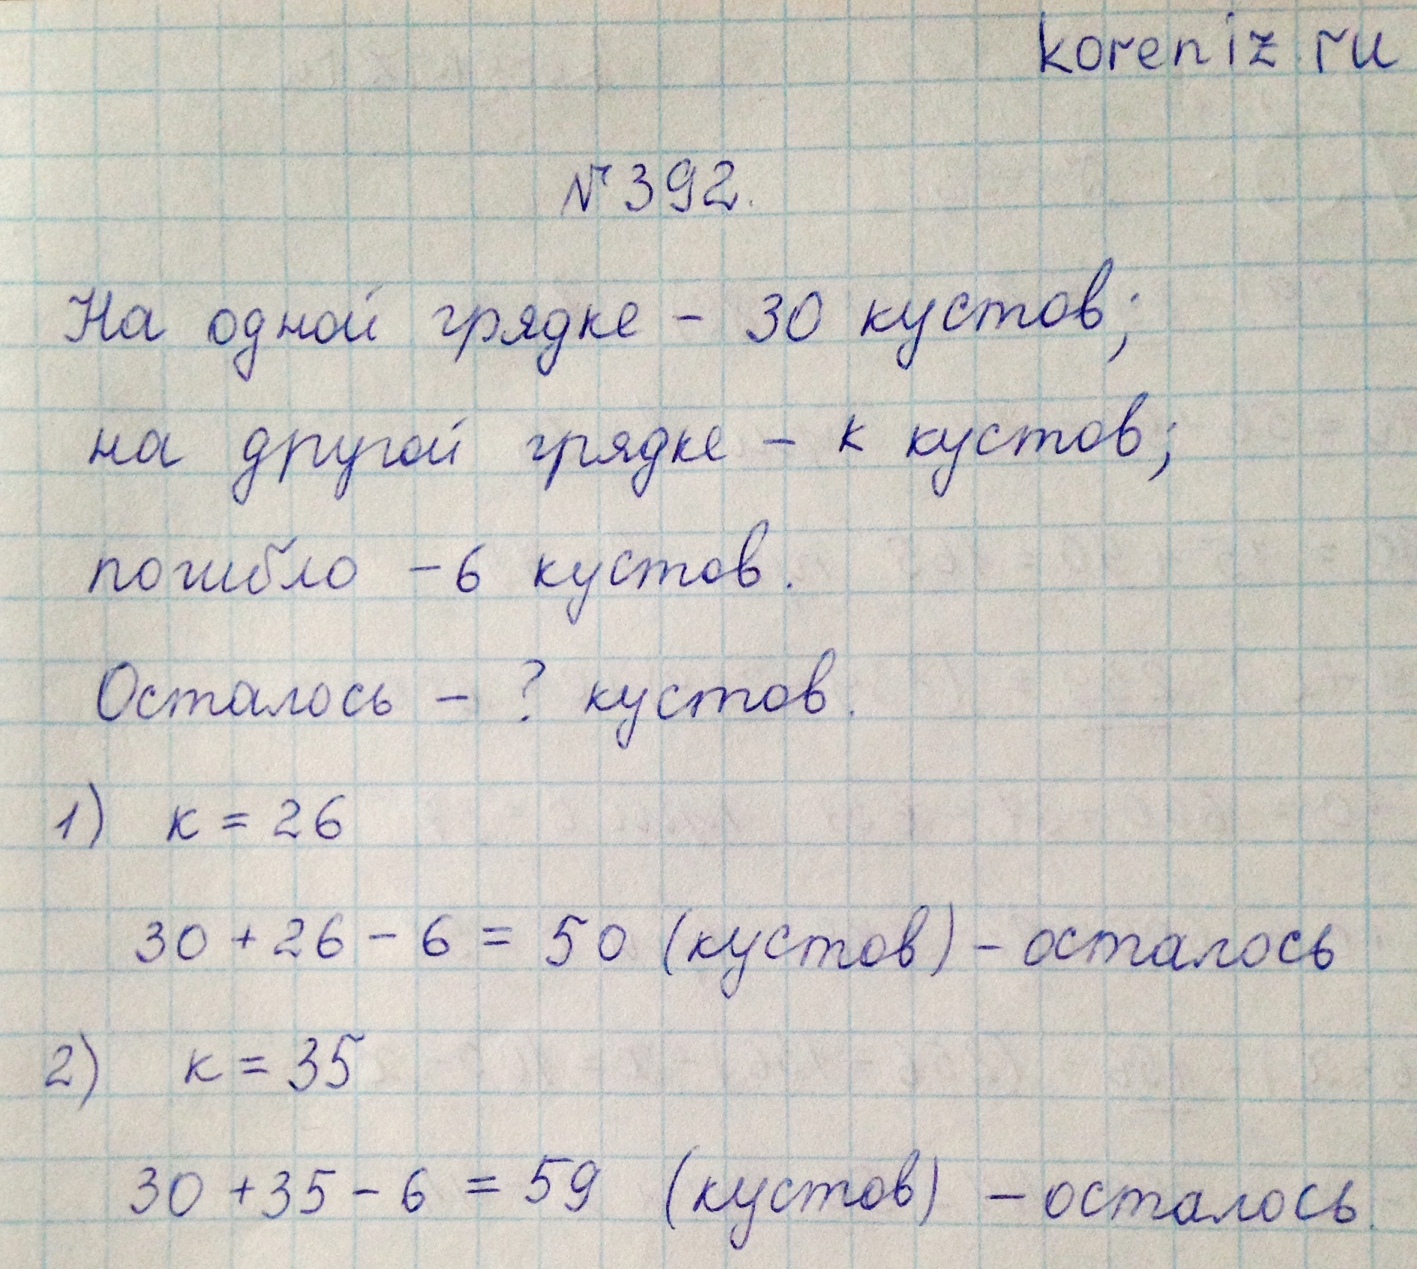 koreniz.ru
№392.
На одной грядке - 30 кустов;
на другой грядке - к кустов;
погибло - 6 кустов.
Осталось - ? кустов.
1) к = 26
30 + 26 - 6 = 50 (кустов) - осталось
2) к = 35
30 + 35 - 6 = 59 (кустов) - осталось.